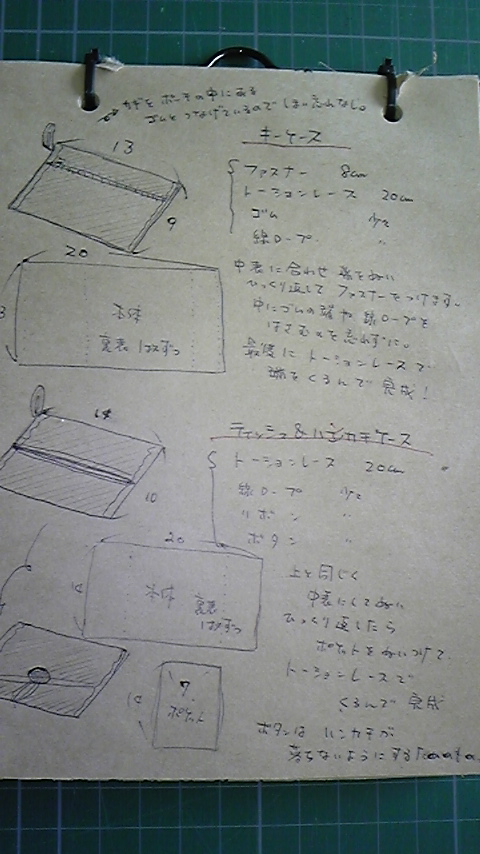 カギを ポーチの中にある
ゴムとつなげているので しまい忘れなし。
キーケース
13
9
ファスナー 8cm
トーションレース 20cm
ゴム 少々
線ロープ 〃
20
本体
裏表 1枚ずつ
中表に合わせ 端をぬい
ひっくり返して ファスナーをつけます。
中にゴムの端や 線ロープを
はさむのを忘れずに。
最後に トーションレースで
端を くるんで 完成!
ティッシュ&ハンカチケース
14
10
トーションレース 20cm
線ロープ 少々
リボン 〃
ボタン 〃
20
14
本体 裏表
1枚ずつ
上と同じく
中表にして ぬい
ひっくり返したら
ポケットをぬいつけて
トーションレースで
くるんで 完成
7
ポケット
ボタンは ハンカチが
落ちないようにする